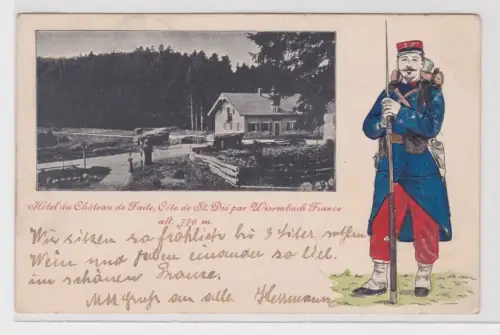 Hôtel du Château de Faite, Côte de St. Dié par Wisembach France
alt. 776 m.
Wir sitzen so fröhlich bei 3 Liter rothem
Wein und haben einander so lieb.
im schönen Franze.
Mit Gruß an alle Herrmann